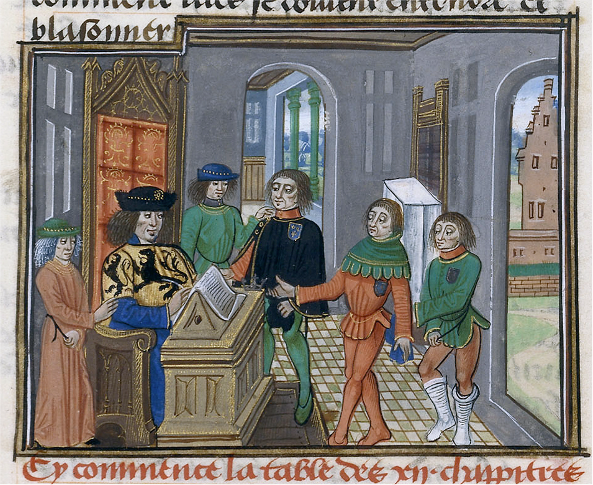 comment se doivent et
blasonner
Cy commence la table des xij chappitres